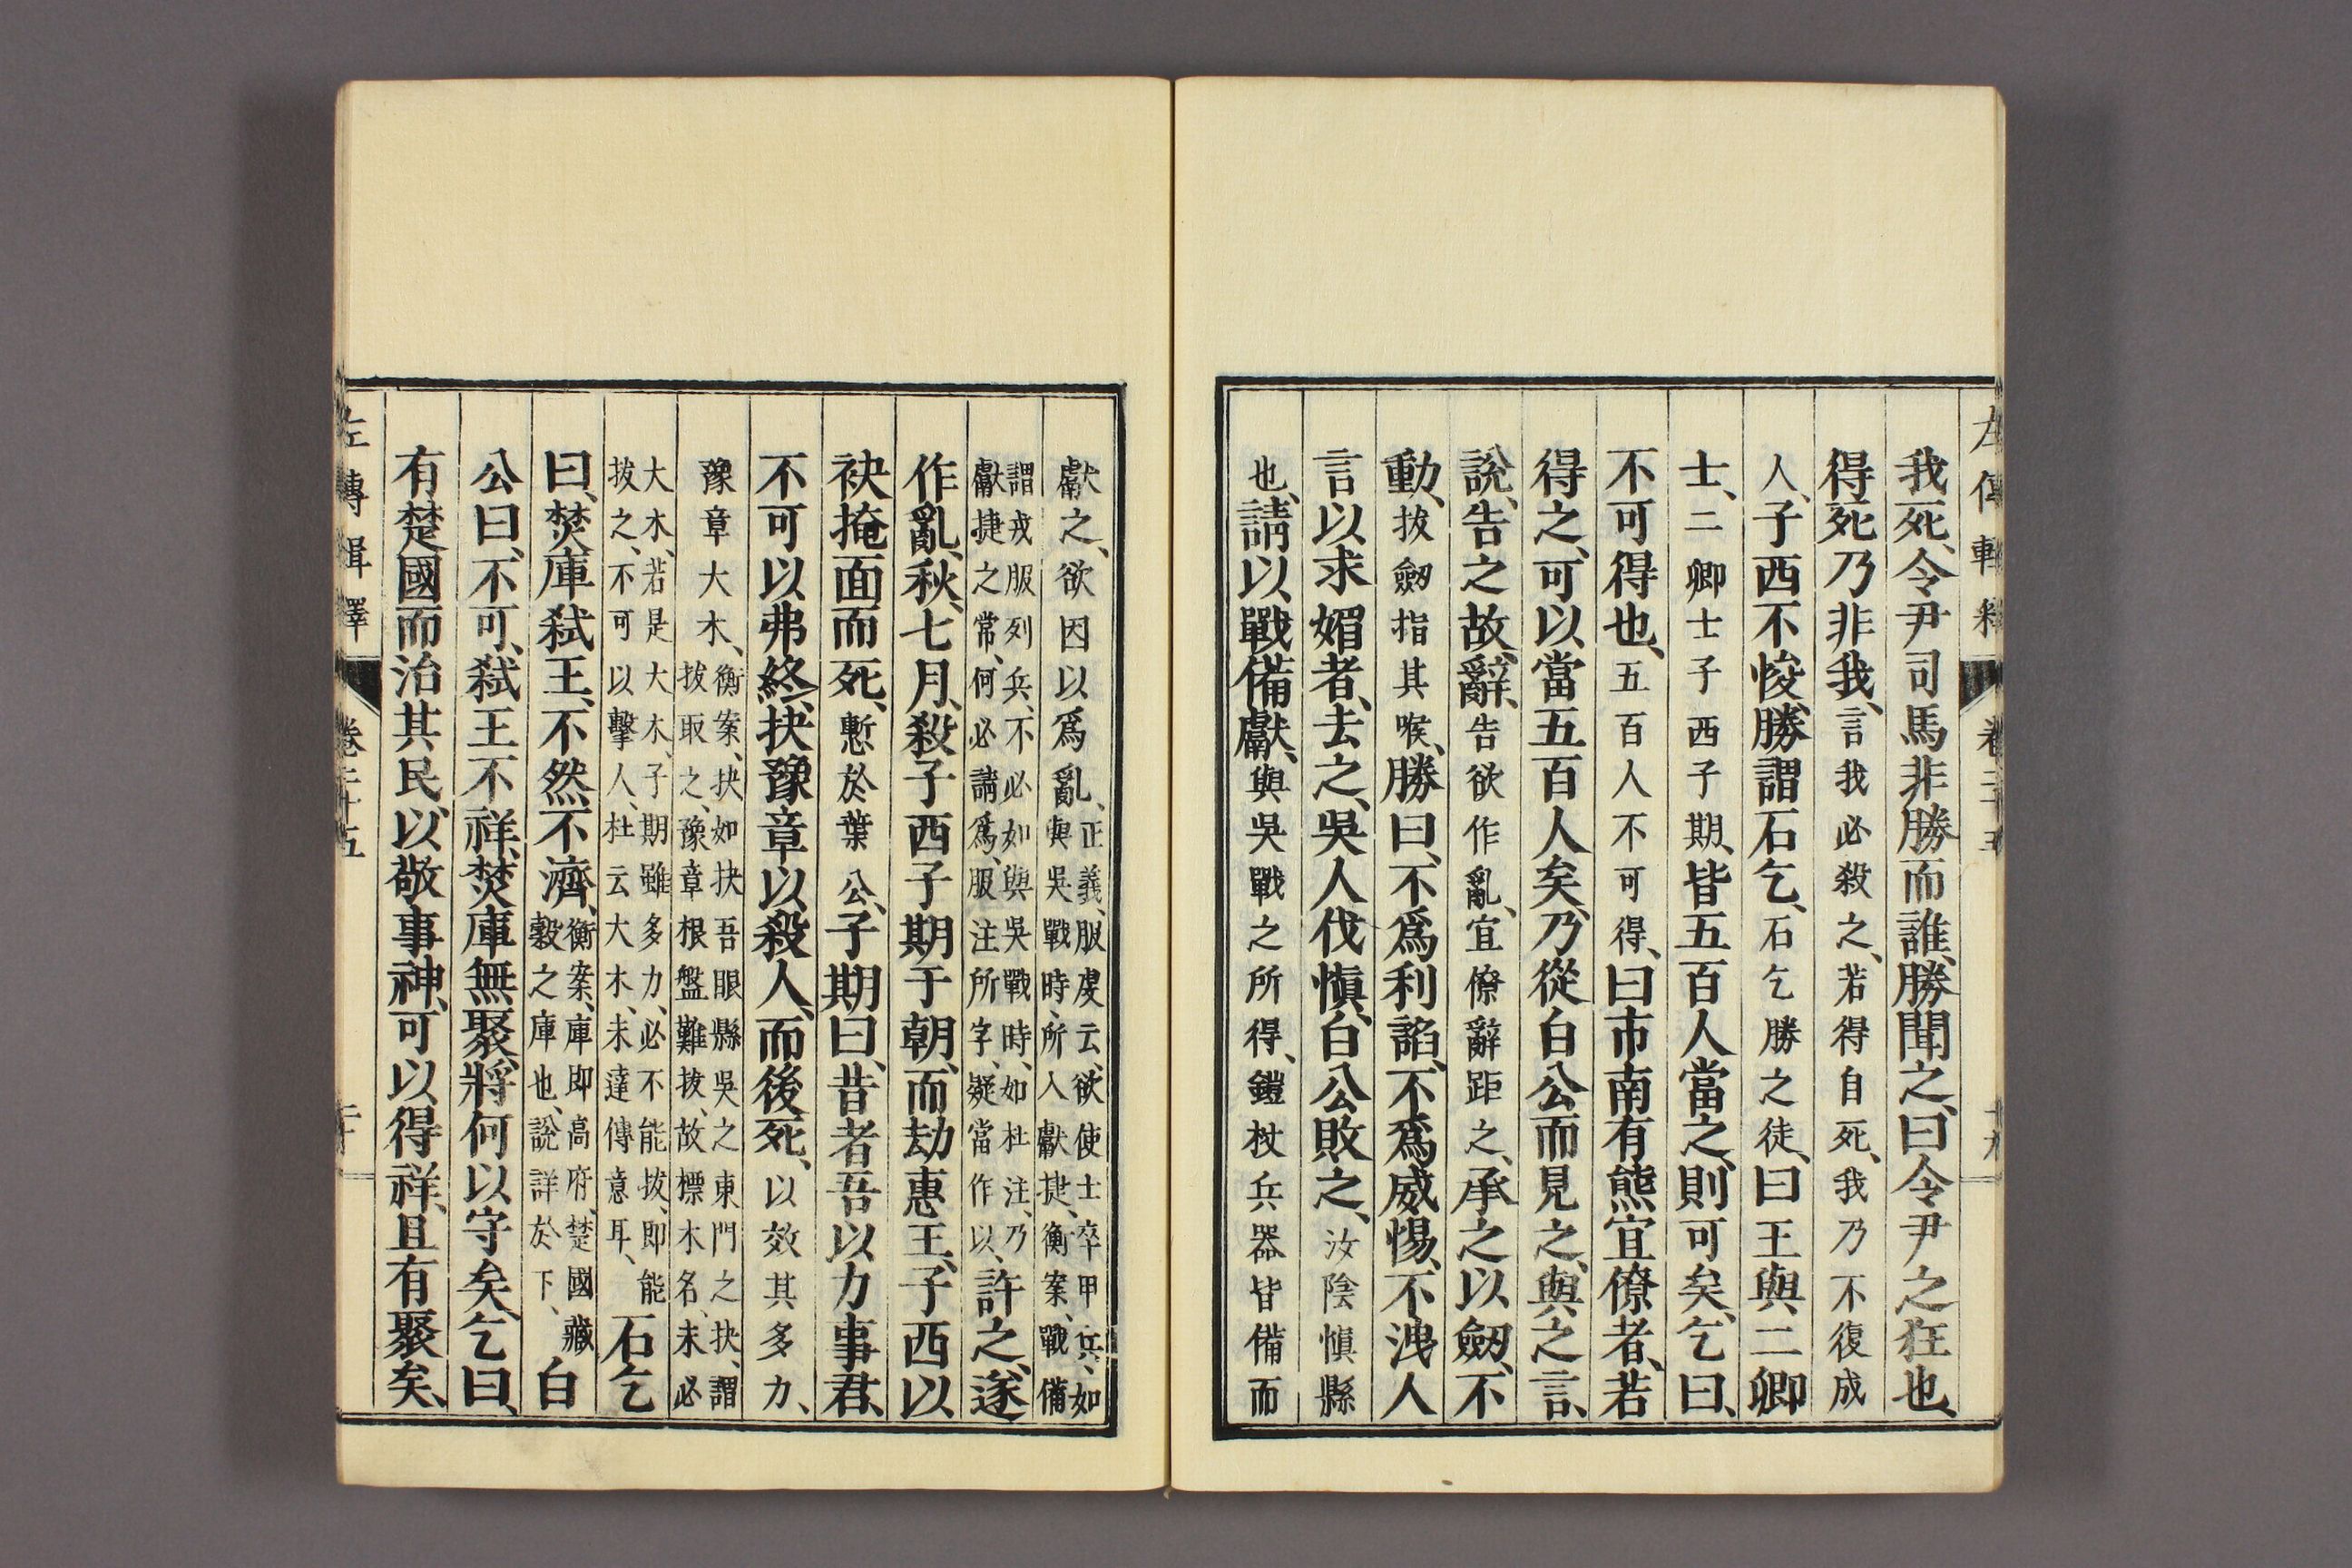 左傳輯釋 卷二十五 十九
我死、令尹司馬非勝而誰、勝聞之、曰令尹之狂也、
得死乃非我、言我必殺之、若得自死、我乃不復成
人、子西不悛、勝謂石乞、石乞勝之徒、曰王與二卿
士、二卿士子西子期、皆五百人當之、則可矣、乞曰、
不可得也、五百人不可得、曰市南有熊宜僚者、若
得之、可以當五百人矣、乃從白公而見之、與之言、
說、告之故、辭、告欲作亂、宜僚辭距之、承之以劒、不
動、拔劒指其喉、勝曰、不爲利諂、不爲威惕、不洩人
言以求媚者、去之、吳人伐愼、白公敗之、汝陰愼縣
也、請以戰備獻、與吳戰之所得、鎧杖兵器皆備而
獻之、欲因以爲亂、正義、服虔云、欲使士卒甲兵、如
與吳戰時、所入獻捷、衡案、戰備
謂戎服列兵、不必如與吳戰時、如杜注、乃
獻捷之常、何必請爲、服注所字、疑當作以、許之、遂
作亂、秋、七月、殺子西子期于朝、而劫惠王、子西以
袂掩面而死、慙於葉公、子期曰、昔者吾以力事君、
不可以弗終、抉豫章以殺人、而後死、以效其多力、
豫章大木、衡案、抉如抉吾眼縣吳之東門之抉、謂
拔取之、豫章根盤難拔、故標木名、未必
大木、若是大木、子期雖多力、必不能拔、卽能
拔之、不可以擊人、杜云大木、未達傳意耳、石乞
曰、焚庫弑王、不然不濟、衡案、庫卽高府、楚國藏
穀之庫也、說詳於下、白
公曰、不可、弑王不祥、焚庫無聚、將何以守矣、乞曰、
有楚國而治其民、以敬事神、可以得祥、且有聚矣、
左傳輯釋 卷二十五 二十